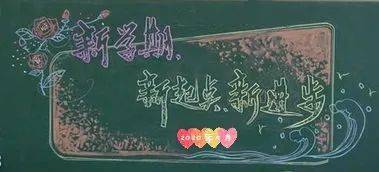 新学期
新起点 新进步